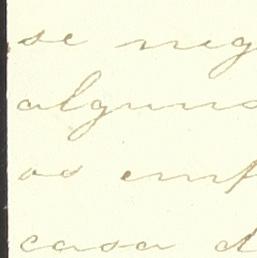 se neg
alguns
os emp
casa d